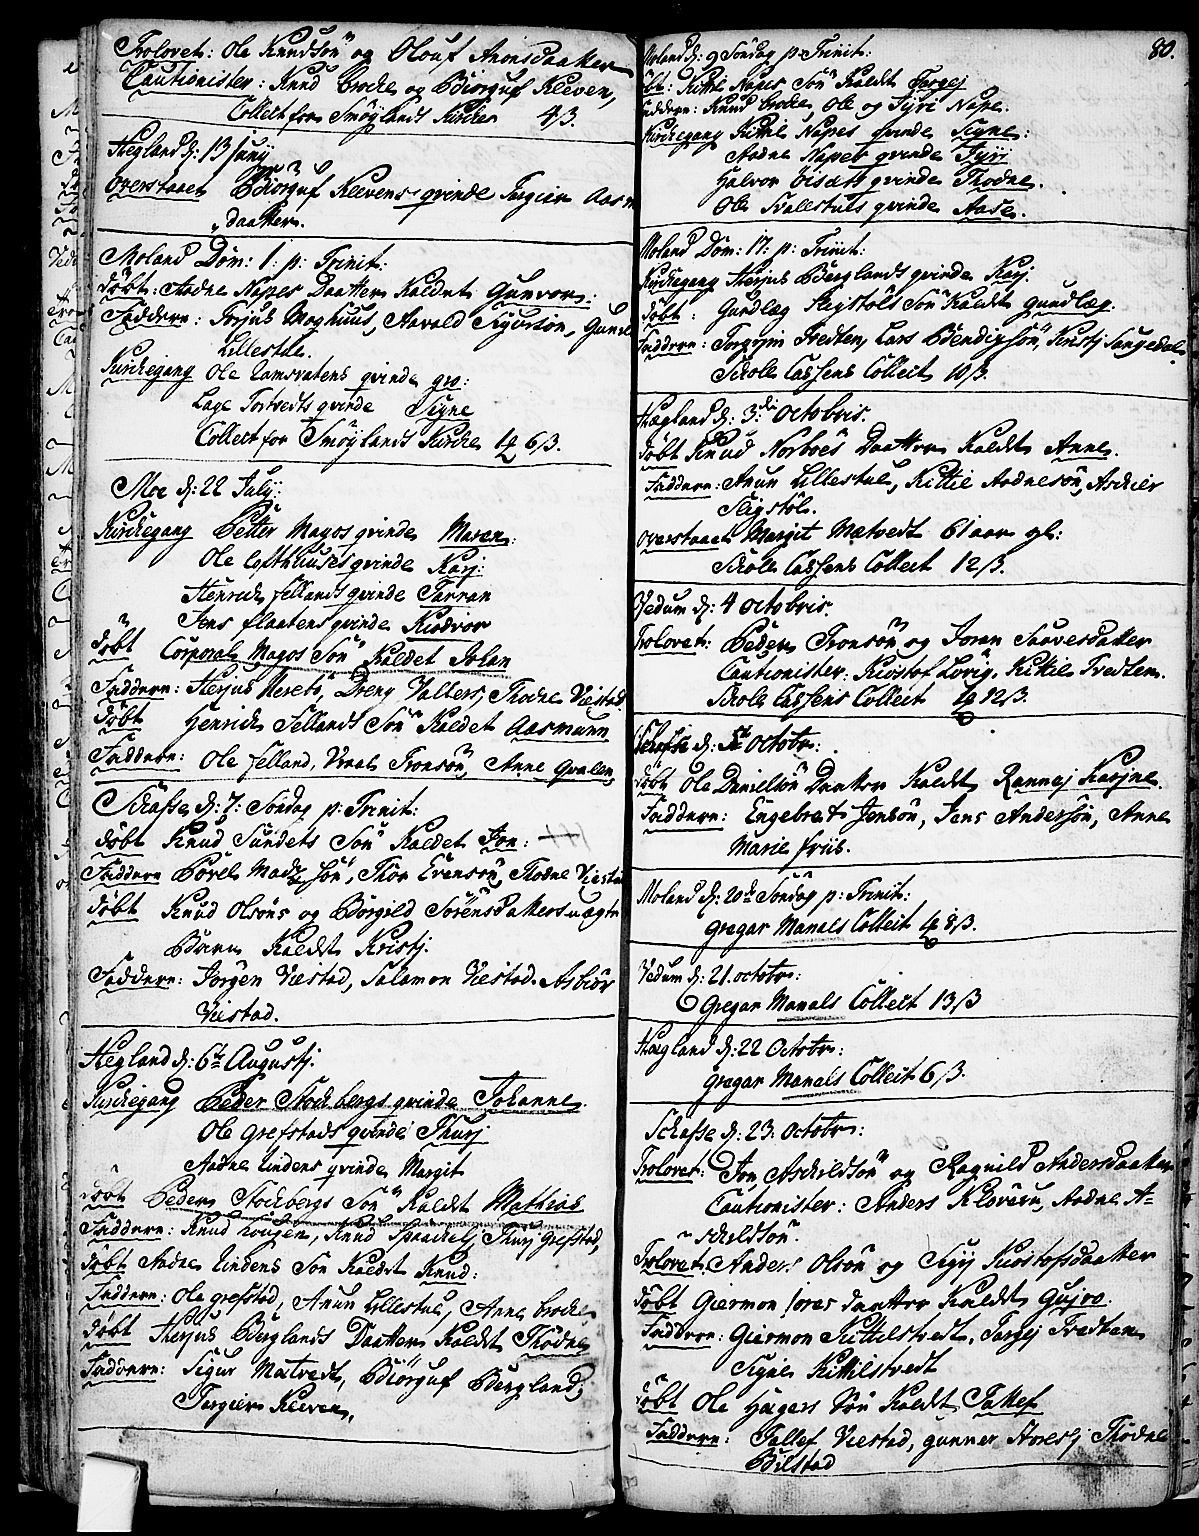 Trolovet: Ole Knudsön og Olouf Aronsdaatter
Cautionister: Knud Brocke og Biörguf Kleven,
Collect for Smöylands Kircke 4 β.
Hegland d: 13 Junij
Overstaaet Biörguf Klevens qvinde Torgier Aasm
daatter.
Moland Dom: 1: p: Trinit:
döbt: Aadne Napes Daatter Kaldet Gunvor.
Faddere: Torjus Moghuus, Aavold Sigursön, Gunild
Lillestlle.
Kirckegang Ole Lamsvatens qvinde gro:
Lage Tortvedts qvinde Signe
Collect for Smöylands Kircke 6 β.
Moe d: 22 July:
Kirckegang Petter Magos qvinde Maren:
Ole Lofthuuses qvinde Karj:
Henrich Fellands qvinde Tarran
Jens flaatens qvinde Kiödvor
döbt Corporal Magos Sön Kaldet Johan
Faddere: Herjus Nesebö, Dreng Valters, Thodne Viestad
döbt Henrich Fellands Sön Kaldet Aasmunn
Faddere: Ole Felland, Vraal Tronsön, Anne Qvalen
Schafse d: 7: Söndag p: Trinit:
döbt Knud Sundets Sön Kaldet Jon:
Faddere Börel Madtzsön, Thor Evensön, Thodne Viestad
döbt Knud Olsöns og Börgild Sörensdatters uægte
Baren Kaldet Kristj.
Faddere: Jorgen Viestad, Salamon Viestad. Asbiör
Viestad.
Hegland d: 6te Augustj:
Kirckegang Peder Stockbergs qvinde Johanne
Ole Grefstads qvinde Thurj
Aadne Lindens qvinde Margit
döbt Peders Stockbergs Sön Kaldet Mathias
Faddere: Knud Lougen, Knud Spaackel, Thurj Grefstad,
döbt Aadne Lindens Sön Kaldet Knud:
Faddere: Ole Grefstad, Anun Lillestul, Anne Brocke
döbt Herjus Berglands Daatter Kaldet Thodne
Faddere: Sigur Matvedt, Biörguf Bergland,
Torgier Kleven.
80.
Moland d: 9 Söndag p: Trinit:
döbt: Kittil Napes Sön Kaldet Torgej
Faddere: Knud Brocke, Ole og Tyri Nape.
Kirckegang Kittil Napes qvinde Signe:
Aadne Napes qvinde Tyri
Halvor qvinde Thodne.
Ole Svalestuls qvinde Aase.
Moland Dom: 17: p: Trinit:
Kirckegang Herjus Berglands qvinde Karj:
döbt: Gundlæg Slegstöls Sön Kaldet Gundlæg.
Faddere: Torgrim Tvedten, Lars Bendixsön, Kristj Langedal
Skole Cassens Collect 10 β.
Hægland d: 3die Octobris.
döbt Knud Norboes Daatter Kaldet Anne.
Faddere: Anun Lillestul, Kittil Aadnesön, Aschier
Slegstöl.
Overstaaet Margit Mætvedt 61 aar gl:
Skole Cassens Collect 12 β.
Vedum d: 4 Octobris.
Trolovet: Peder Tronsön og Joran Saavesdatter
Cautionister: Kiöstof Lövig, Kittil Tvedten.
Skole Cassens Collect 12 β.
Schafse d: 5te Octobr:
döbt Ole Danielsön Daatter Kaldet Rannej Karine
Faddere: Engebret Jonsön, Jens Andersön, Anne
Marie friis.
Moland d: 20de Söndag p: Trinit:
Gregar Manals Collect 8 β.
Vedum d: 21. octobr:
Gregar Manals Collect 13 β
Hægland d: 22 Octobr:
Gregar Manals Collect 6 β.
Schafse d: 23. Octobr:
Trolovet: Jon Aschildsön og Ragnild Andersdaatter
Cautionister: Anders Klöveren, Aadne A-
schildsön.
Trolovet. Anders Olsön og Sigrj Kiostofsdaatter
döbt Giermon daatter Kaldet Gujro.
Faddere: Giermon Kittilstvedt, Torgej Tvedten
Signe Kittilstvedt
döbt Ole Hægers Sön Kaldet Tallef
Faddere: Tallef Viestad, Gunner Thodne
Bilstad